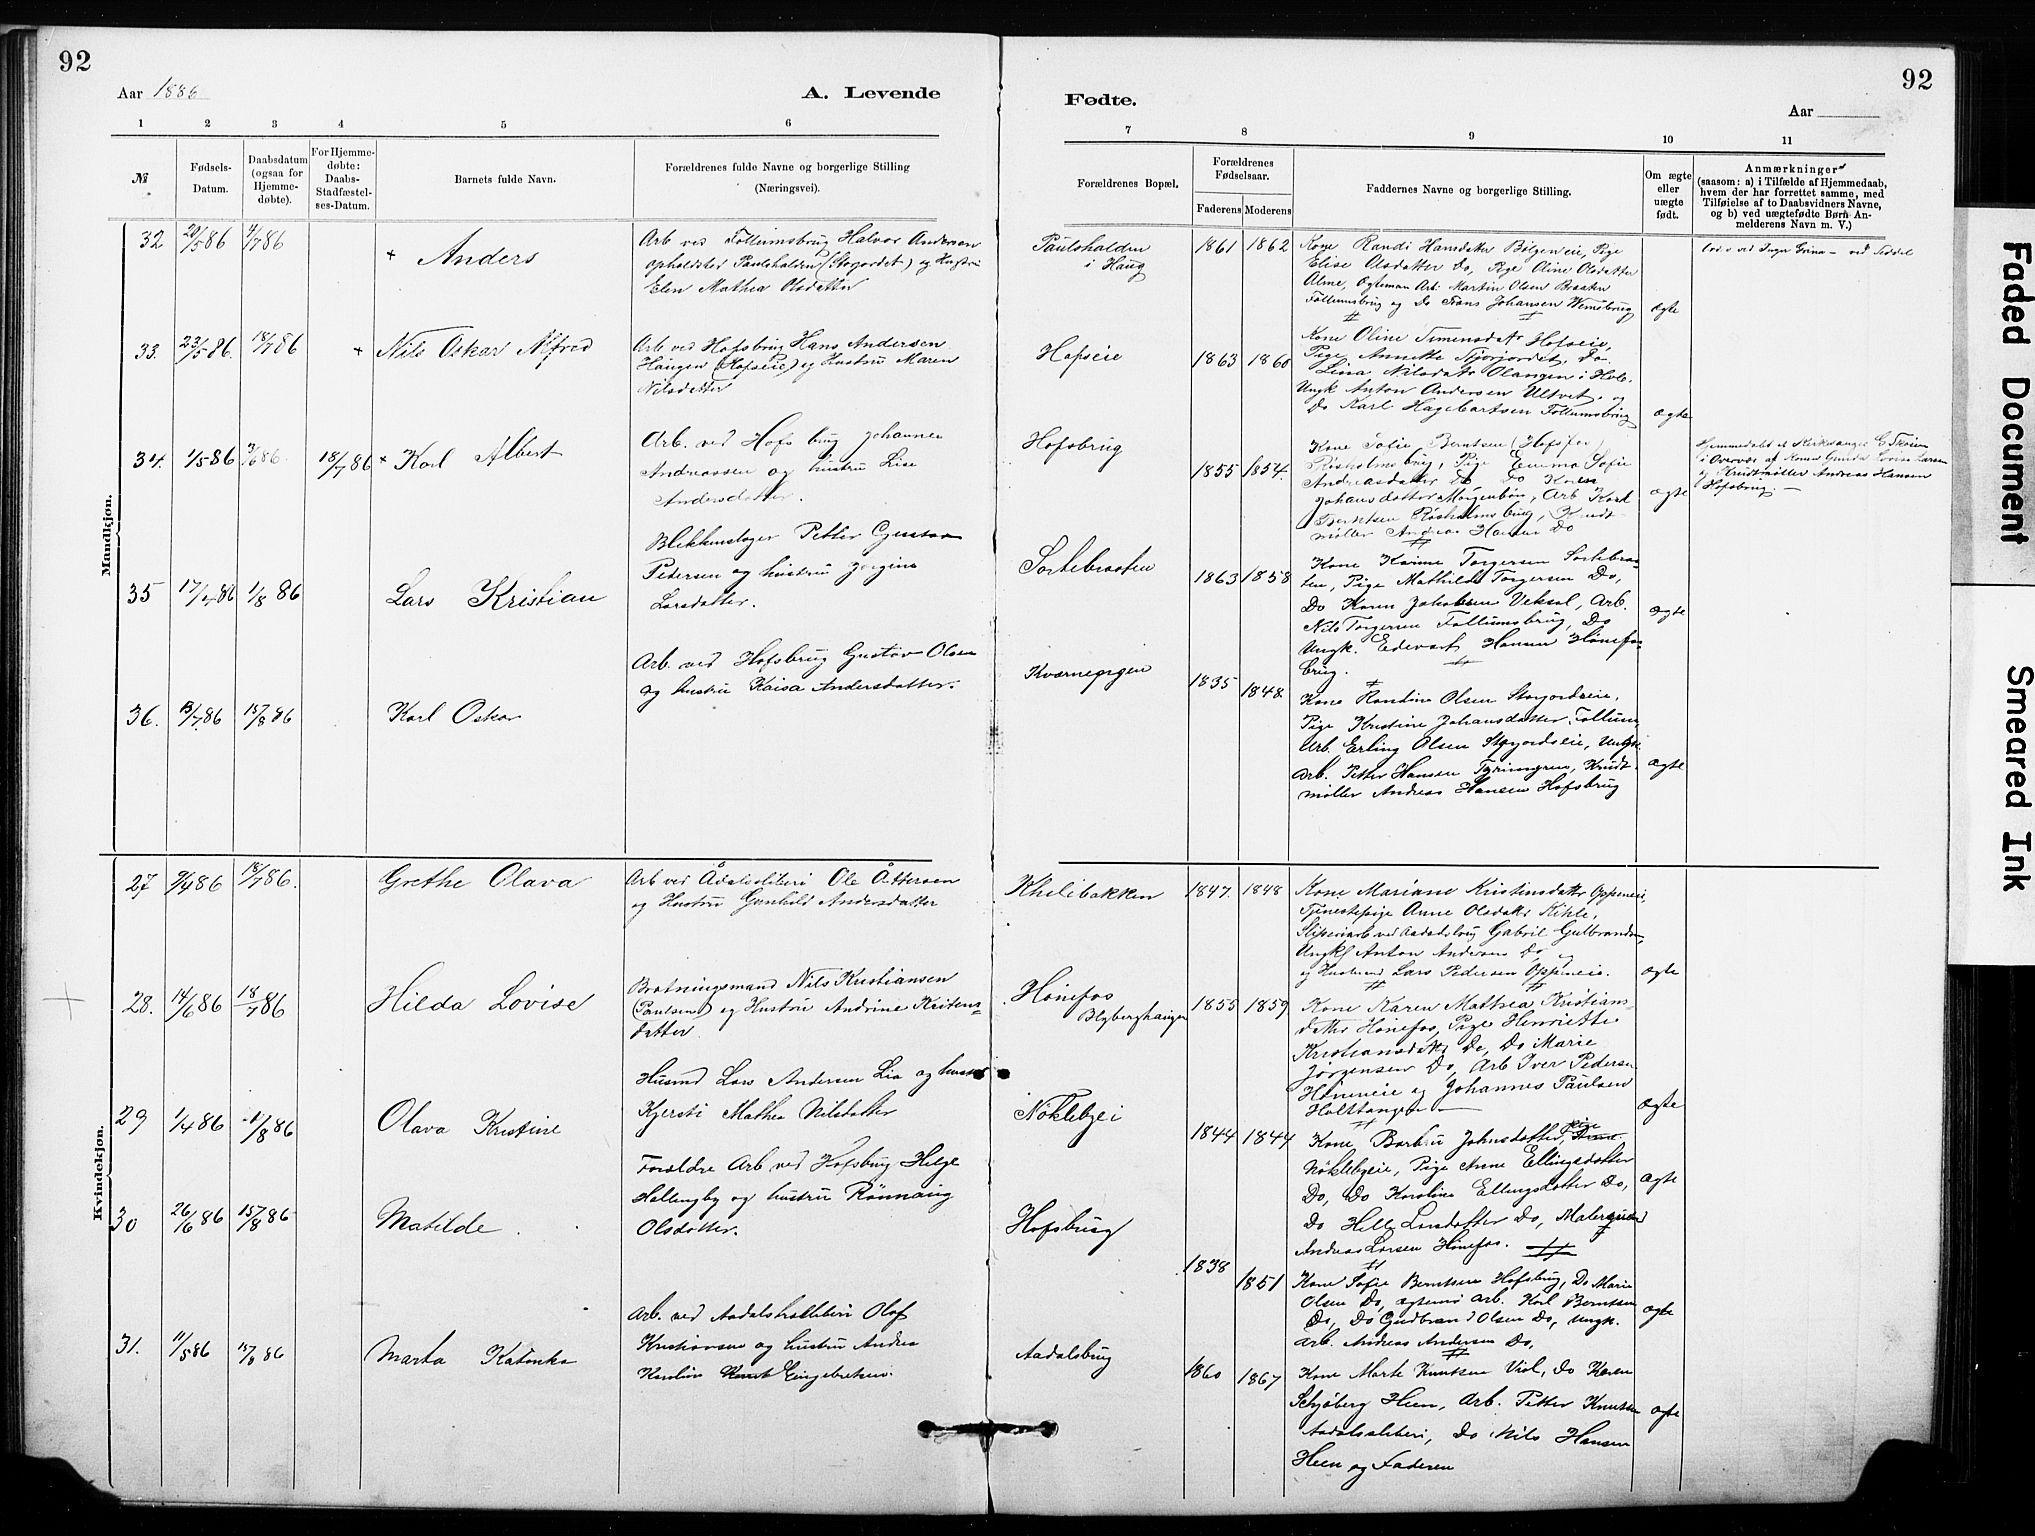 92
Aar 1886
A. Levende
1 2 3 4 5 6
№
Fødsels-
Datum.
Daabsdatum
(ogsaa for
Hjemme-
døbte).
For Hjemme-
døbte:
Daabs-
Stadfæstel-
ses-Datum.
Barnets fulde Navn.
Forældrenes fulde Navne og borgerlige Stilling
(Næringsvei).
Mandkjøn.
32 20/5 86 4/7 86 + Anders
Arb ved Follumsbrug Halvor Andersen
opholdsted Paulshalden (Storjordet) og Hustru
Elen Mathea Olsdatter
33. 23/5 86. 18/7 86 + Nils Oskar Alfred
Arb ved Hofsbrug Hans Andersen
Haugen (Hofseie) og Hustru Maren
Nilsdatter
34. 1/5 86 3/6 86. 18/7 86 + Karl Albert
Arb. ved Hofsbrug Johannes
Andreassen og hustru Lise
Andersdatter.
35 17/4 86 1/8 86 Lars Kristian
Blikkenslager Petter Gustav
Pedersen og hustru Jorgine
Larsdatter.
36. 13/7 86 15/8 86 Karl Oskar
Arb. ved Hofsbrug Gustav Olsen
og hustru Kaisa Andersdatter.
Kvindekjøn.
27 9/4 86 18/7 86. Grethe Olava
Arb ved Ådalssliberi Ole Åttersen
og Hustru Gunhild Andersdatter
28. 14/6 86 18/7 86 Hilda Lovise
Brotningsmand Nils Kristiansen
(Paulsen) og Hustru Andrine Kristens-
datter
29 1/4 86 1/8 86 Olava Kristine
Husmd Lars Andersen Lia og hustru
Kjersti Mathea Nilsdatter
30 26/6 86 15/8 86 Matilde.
Forældre Arb ved Hofsbrug Helge
Hallingby og hustru Rønnaug
Olsdatter.
31. 11/5 86 15/8 86 Marta Katinka
Arb. ved Aadalstræsliberi Olof
Kristiansen og hustru Andrea
Karoline Engebretsen.
92
Fødte.
Aar
7 8 9 10 11
Forældrenes Bopæl.
Forældrenes
Fødselsaar.
Faderens Moderens
Faddernes Navne og borgerlige Stilling.
Om ægte
eller
uægte
født.
Anmærkninger
(saasom: a) i Tilfælde af Hjemmedaab,
hvem der har forrettet samme, med
Tilføielse af to Daabsvidners Navne,
og b) ved uægtefødte Børn An-
melderens Navn m. V.)
Paulshalden
i Haug
1861 1862
Kone Randi Hansdatter Bølgeneie, Pige
Elise Olsdatter Do, Pige Oline Olsdatter
Alme, Ægteman Arb. Martin Olsen Braaten
Follumsbrug og Do Frans Johansen Wemebrug
ægte
Hofseie
1863 1860
Kone Oline Simensdatr Hofseie,
Pige Annette Storjordet, Do
Lina Nilsdatr Olangen i Hole.
Ungk Anton Andersen Ultvet. og
Do Karl Hagebartsen Follumsbrug
ægte
Hofsbrug
1855 1854.
Kone Sofie Berntsen (Hofsfos)
Risholmsbrug, Pige Emma Sofie
Andreasdatter Do Do Karen
Johansdatter Morgenbøn, Arb Karl
Berntsen Risholmsbrug, Krudt-
møller Andreas Hansen Do
ægte
Hjemmedøbt af Kirkesanger
i Overvær af Konen Gunda Lovise Larsen
og Krudtmøller Andreas Hansen
Hofsbrug. —
Sortebraaten
1863 1858
Kone Karine Torgersen Sortebraa-
ten, Pige Mathilde Torgersen Do,
Do Karen Jakobsen Veksal, Arb.
Nils Torgersen Follumsbrug, Do
Ungk. Edevart Hansen Hønefos
brug.
ægte
Kværnepigen
1835 1848.
Kone Randine Olsen Storjordseie,
Pige Kristine Johansdatter Follum,
Arb. Erling Olsen Storjordseie, Ungk.
Arb. Petter Hansen Tyrimyren, Krudt
møller Andreas Hansen Hofsbrug
ægte
Khilibakken
1847. 1848
Kone Mariane Kristensdatr Oppeneie,
Tjenestepige Anne Olsdatr Kihle,
Sliperiarb ved Aadalsbrug Gabriel Gulbrandsen,
Ungkl Anton Andersen Do
og Husmand Lars Pedersen Oppeneie.
ægte
Hønefos
Blybergshaugen
1855 1859
Kone Karen Mathea Kristians-
datr Hønefos, Pige Henriette
Kristiansdatr Do, Do Marie
Jørgensen Do, Arb Iver Pedersen
Høneneie og Johannes Paulsen
Holttangen
ægte
Nøklebyei
1844 1844
Kone Barbro Johnsdatter, Pige
Nøklebyeie, Pige Anne Ellingsdatter
Do, Do Karoline Ellingsdatter Do,
Do Helle Larsdatter Do, Malersvend
Andreas Larsen Hønefos.
ægte
Hofsbrug
1838 1851
Kone Sofie Berntsen Hofsbrug, Do Marie
Olsen Do, ægtemd Arb. Karl Berntsen
Do, Do Gudbrand Olsen Do, Ungk.
Arb. Andreas Andersen Do,
ægte
Aadalsbrug
1860 1867
Kone Marte Knutsen Viol, Do Karen
Schjøberg Heen, Arb. Petter Knutsen
Aadalssliberi, Do Nils Hansen
Heen og Faderen
ægte
Faded Document
Smeared Ink